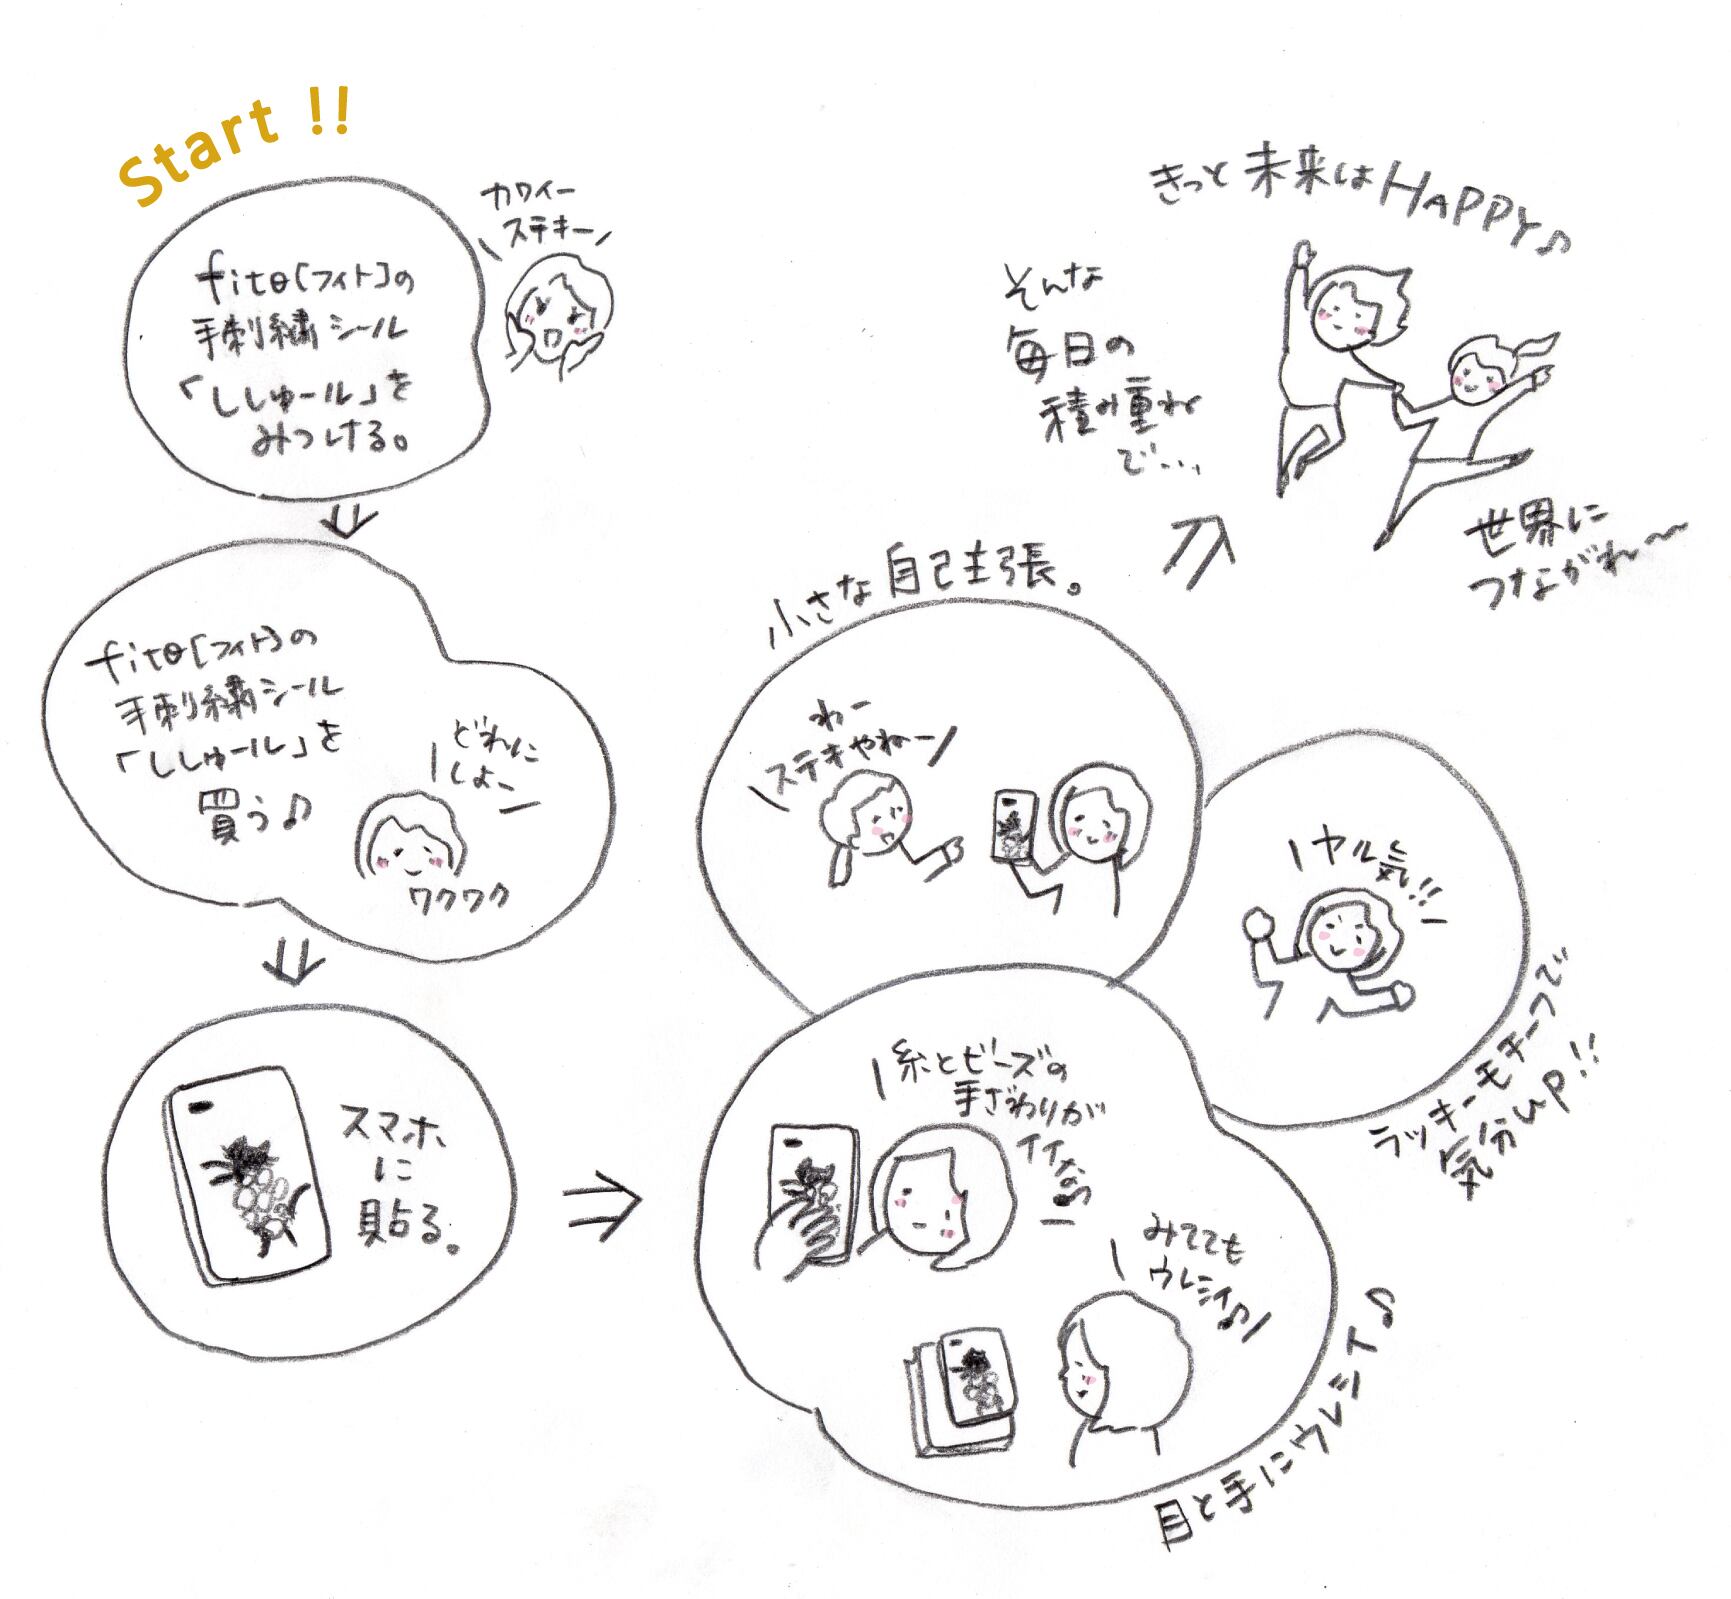 Start !!
fito[フィト]の
手刺繍シール
「ししゅール」を
みつける。
カワイー
ステキー
fito[フィト]の
手刺繍シール
「ししゅール」を
買う♪
どれに
しよー
ワクワク
スマホ
に
貼る。
小さな自己主張。
わー
ステキやねー
ヤル気!!
ラッキーモチーフで
気分up!!
糸とビーズの
手ざわりが
イイな♪
みてても
ウレシイ♪
目と手にウレシイ♪
そんな
毎日の
積み重ね
で...
きっと未来はHAPPY♪
世界に
つながれ〜